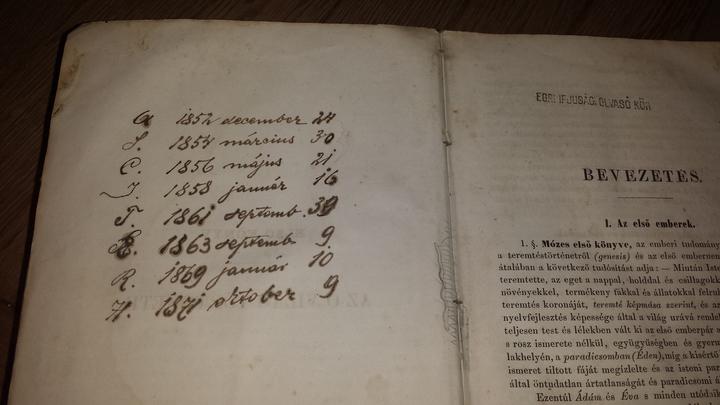 G 1852 december 24
S. 1854 március 30
C. 1856 május 21
J. 1858 január 16
F. 1861 septemb.
1863 septemb 9
R. 1869 január 10
H. 1871 october 9
EGRI IFJUSÁGI OLVASÓ KÖR
BEVEZETÉS.
I. Az első emberek.
1. §. Mózes első könyve, az emberi tudomány
a teremtéstörténetről (genesis) és az első embernem
átalában a következő tudósítást adja: — Mintán Iste
teremtette, az eget a nappal, holddal és csillagokk
növényekkel, termékeny fűkkal és állatokkal felru
teremtés koronáját, teremté képmása szerint, és az
nyelvfejlesztés képessége által a világ urává rendel
teljesen test és lélekben vált ki az első emberpár a
s rosz ismerete nélkül, együgyűségben és gyerm
lakhelyén, a paradicsomban (Éden), mig a kísértő
ismeret tiltott fáját megizlelte és az isteni par
által öntudatlan ártatlanságát és paradicsomi á
Ezentúl Ádám és Éva s minden utódaik